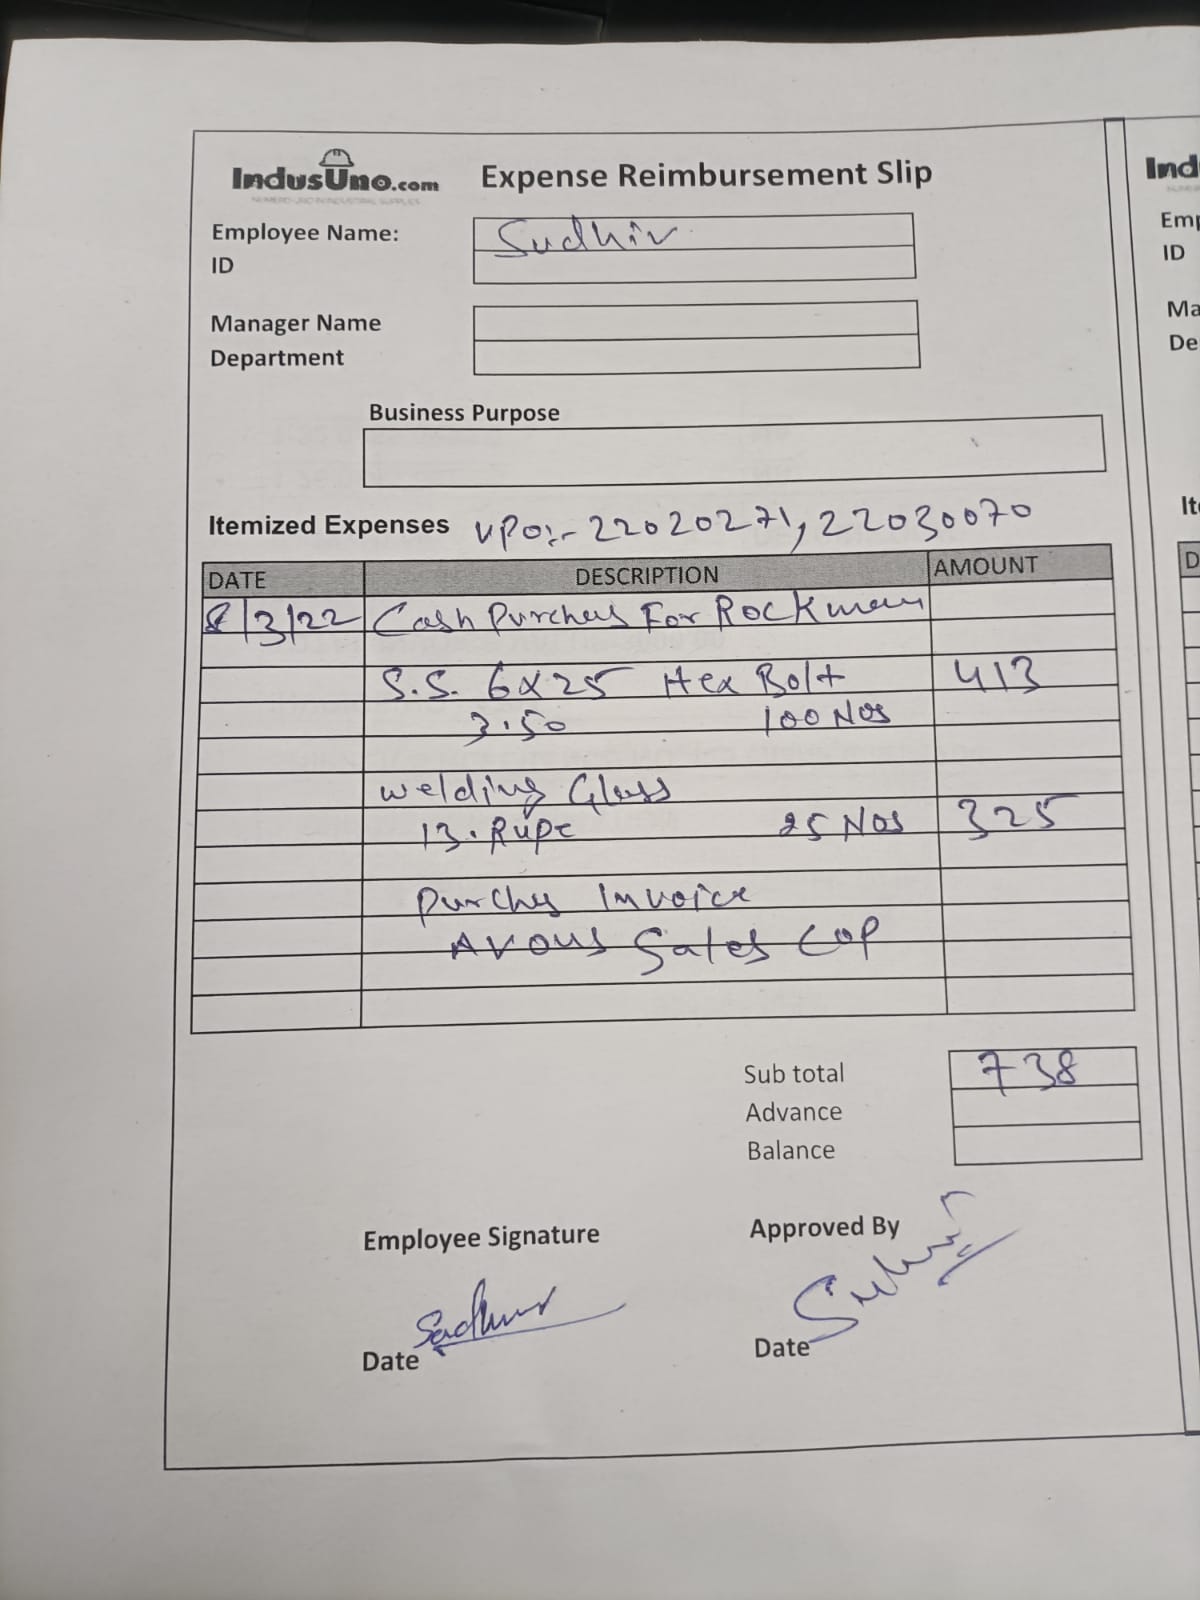 IndusUno.com
NUMERO UNO IN INDUSTRIAL SUPPLIES
Expense Reimbursement Slip
Employee Name: Sudhir
ID
Manager Name
Department
Business Purpose
Itemized Expenses VPO:- 22020271, 22030070
DATE DESCRIPTION AMOUNT
8/3/22 Cash Purches For Rockman
S.S. 6x25 Hex Bolt 413
3.50 100 Nos
welding Glass
13. Rupe 25 Nos 325
Purches Invoice
Sales
Sub total 738
Advance
Balance
Employee Signature
Approved By
Sudhir
Date
Date
Ind
Emp
ID
Ma
De
It
D